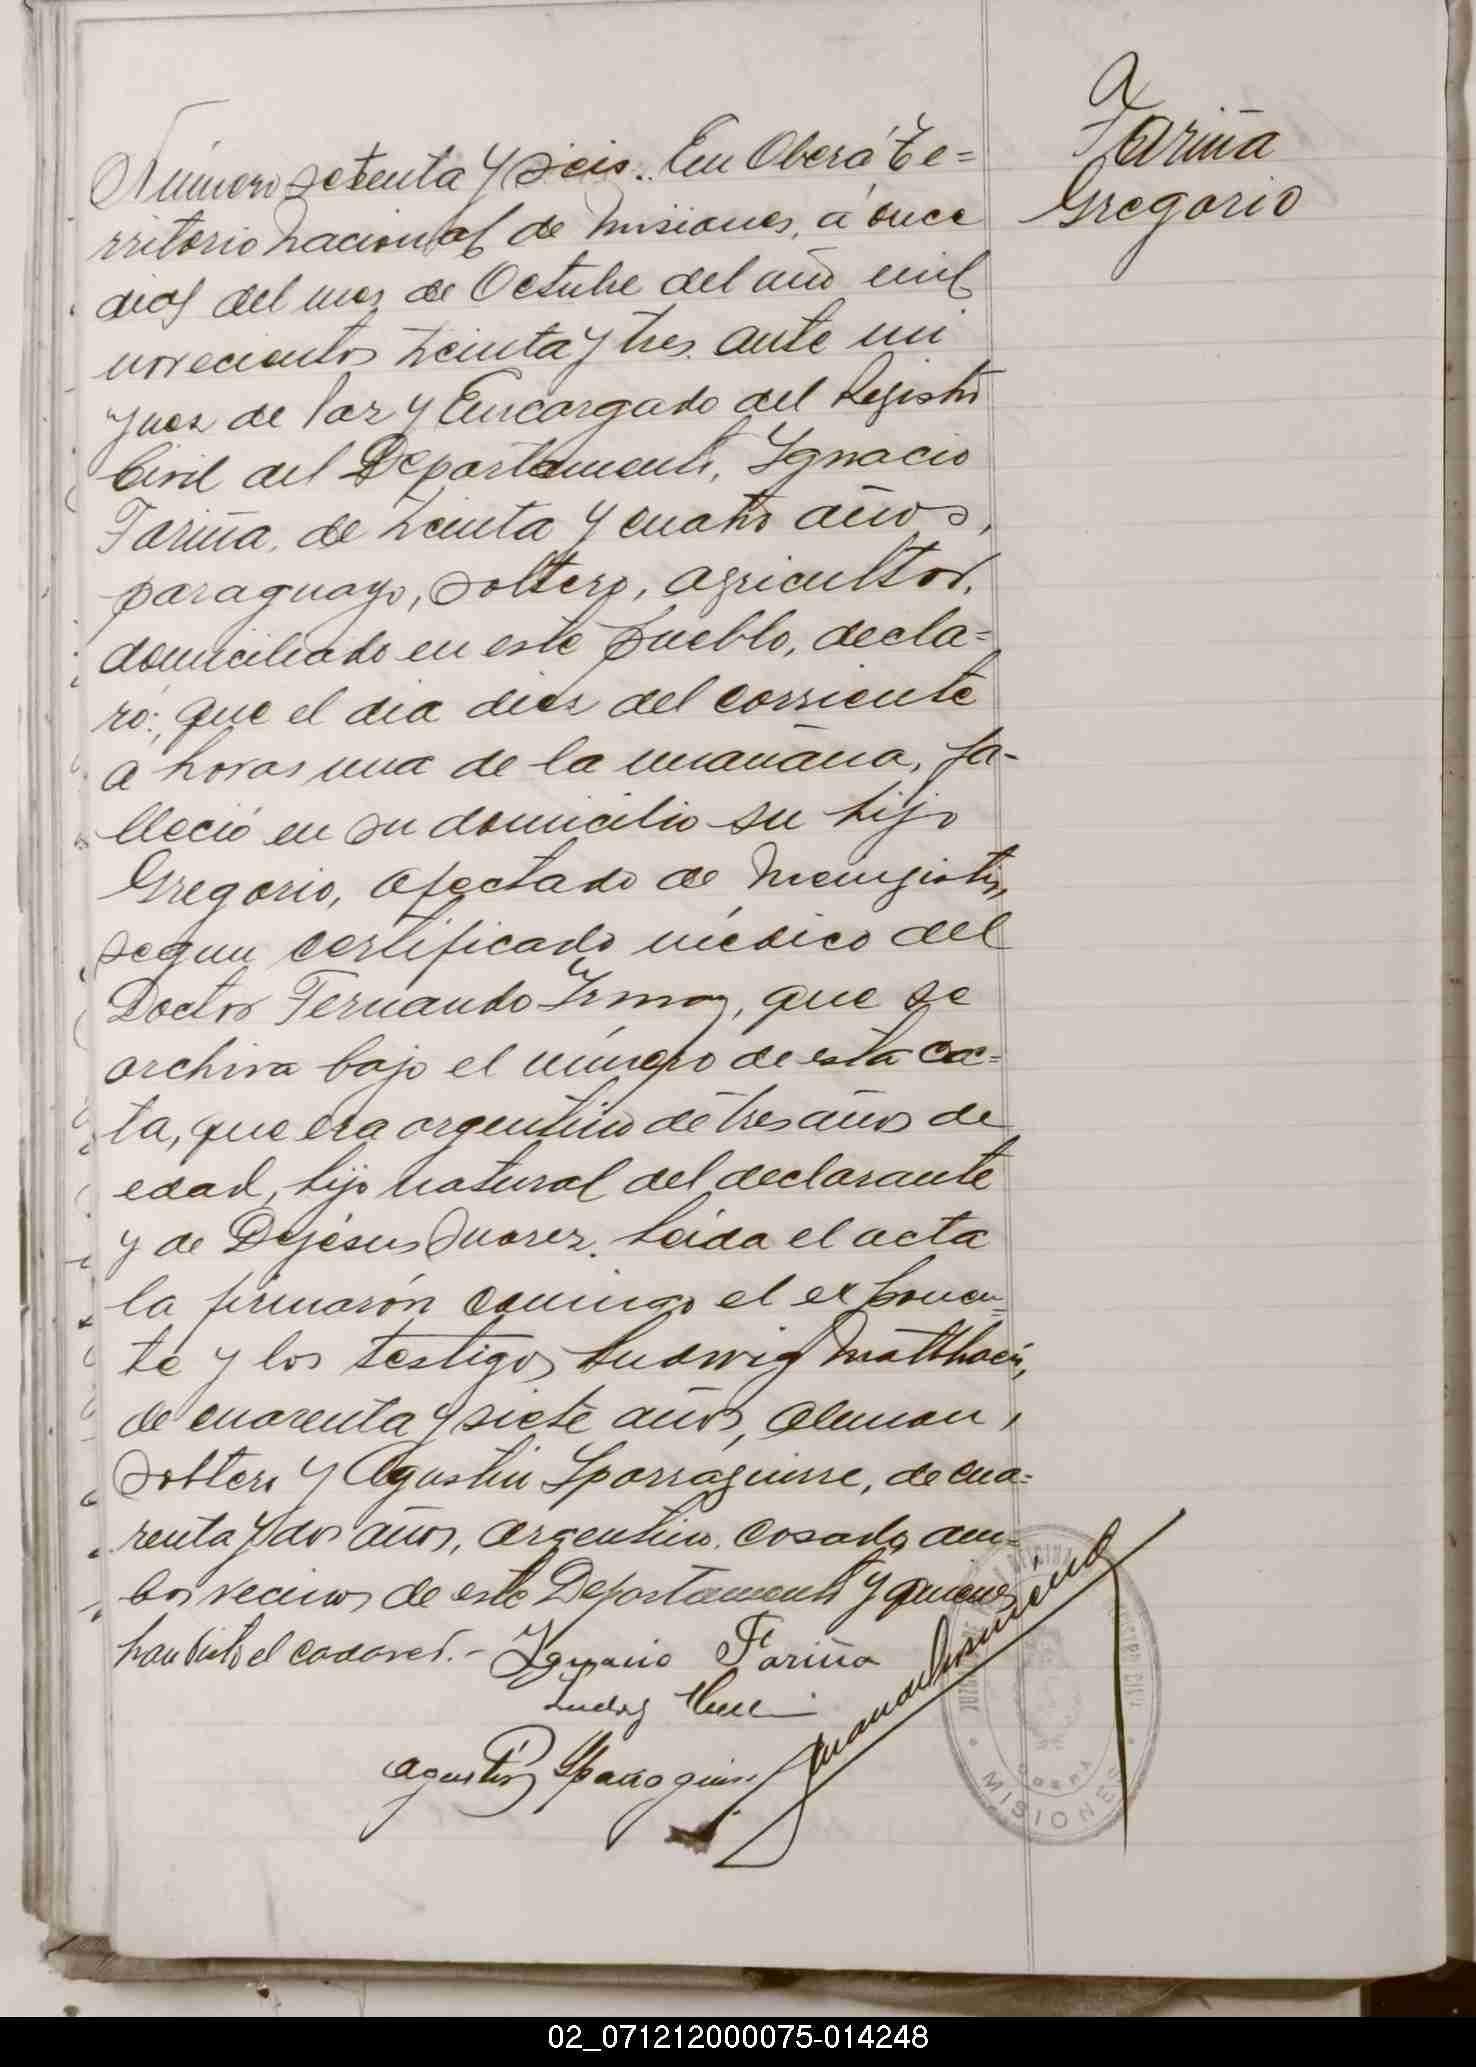 Fariña
Gregorio
Número setenta y seis. En Oberá Te=
rritorio Nacional de Misiones, á once
dias del mes de Octubre del año mil
novecientos treinta y tres. ante mi
Juez de Paz y Encargado del Registro
Civil del Departamento, Ygnacio
Fariña, de treinta y cuatro años,
paraguayo, soltero, agricultor,
domiciliado en este pueblo, decla=
ró:, que el dia diez del corriente
a horas una de la mañana, fa-
lleció en su domicilio su hijo
Gregorio, afectado de
segun certificado médico del
Doctor Fernando, que se
archiva bajo el número de esta ac=
ta, que era argentino de tres años de
edad, hijo natural del declarante
y de Dejésus Suarez. Leida el acta
la firmarón conmigo el exponen=
te y los testigos Ludwig
de cuarenta y siete años, aleman,
soltero y Agustin Yparraguirre, de cua=
renta y dos años, argentino, casado, am-
bos vecinos de este Departamento y quienes
han visto el cadaver.- Ygnacio Fariña
Agustin Yparraguirre
OBERÁ
MISIONES
02_071212000075-014248